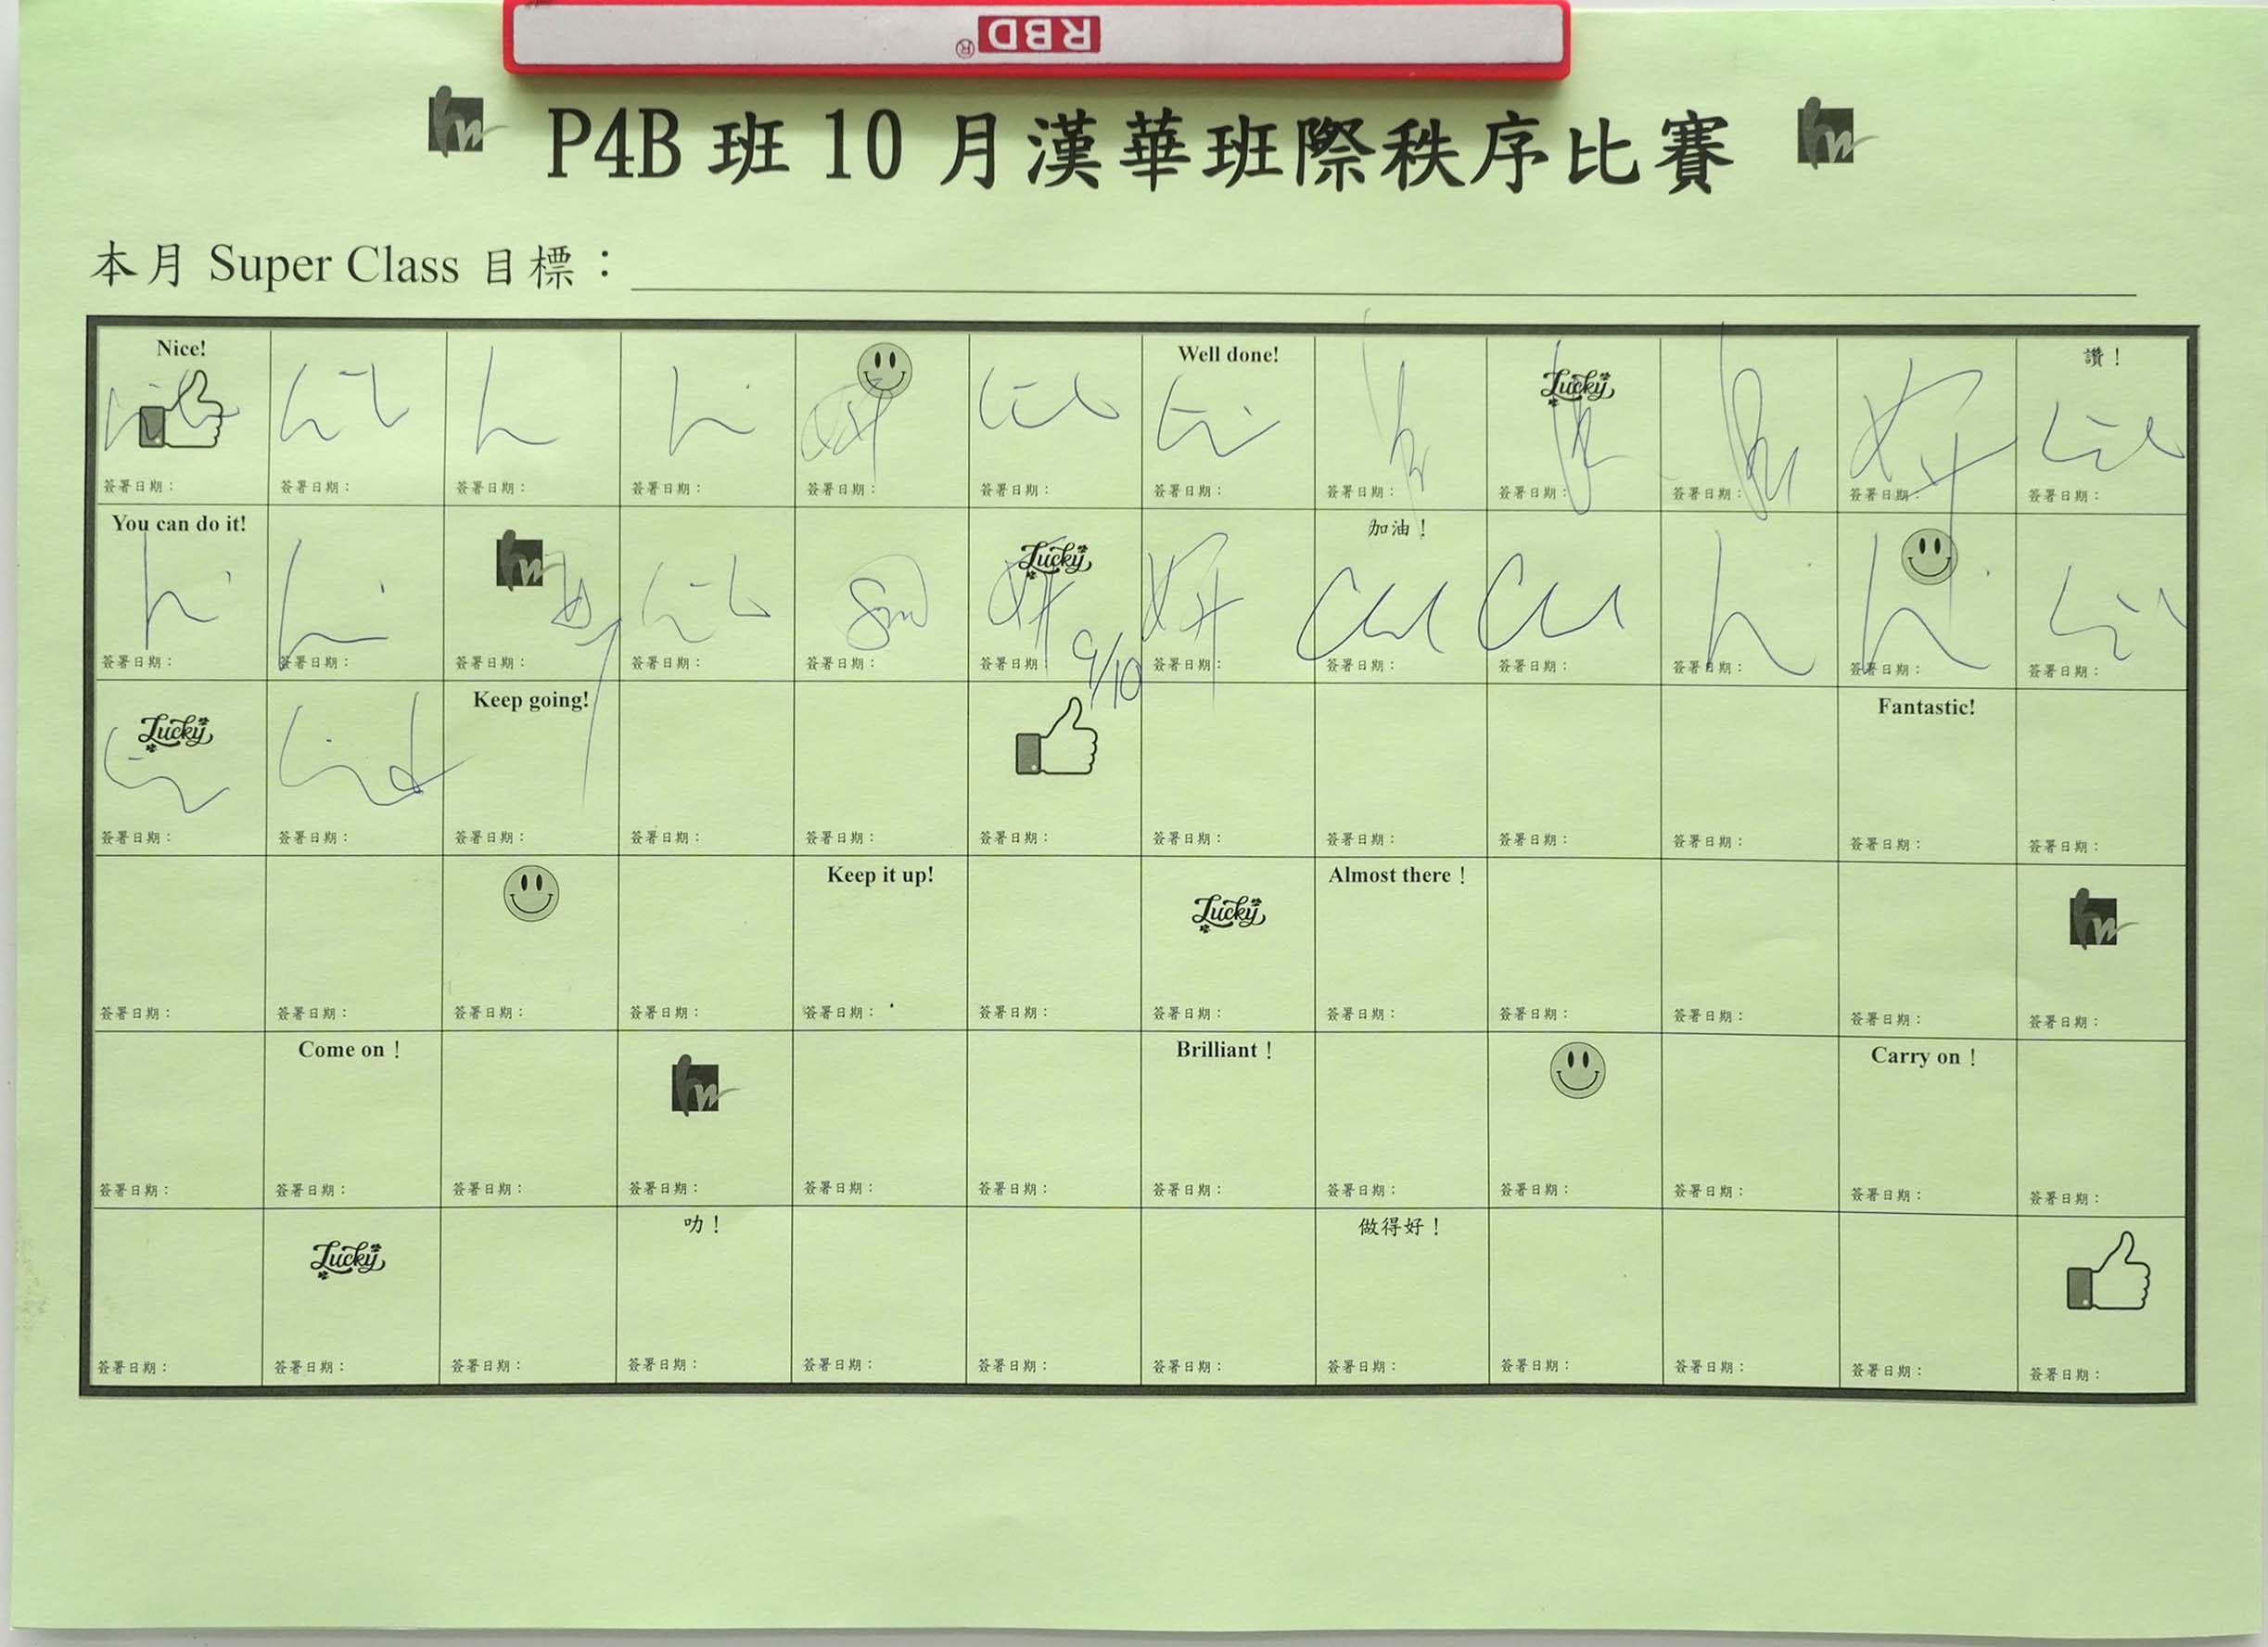 RBD®
P4B 班 10 月漢華班際秩序比賽
本月 Super Class 目標：
Nice! Well done! 讚！
Lucky
簽署日期： 簽署日期： 簽署日期： 簽署日期： 簽署日期： 簽署日期： 簽署日期： 簽署日期： 簽署日期： 簽署日期： 簽署日期： 簽署日期：
You can do it! 加油！
hw Lucky
9/10
簽署日期： 簽署日期： 簽署日期： 簽署日期： 簽署日期： 簽署日期： 簽署日期： 簽署日期： 簽署日期： 簽署日期： 簽署日期： 簽署日期：
Keep going! Fantastic!
Lucky
簽署日期： 簽署日期： 簽署日期： 簽署日期： 簽署日期： 簽署日期： 簽署日期： 簽署日期： 簽署日期： 簽署日期： 簽署日期： 簽署日期：
Keep it up! Almost there！
Lucky hw
簽署日期： 簽署日期： 簽署日期： 簽署日期： 簽署日期： 簽署日期： 簽署日期： 簽署日期： 簽署日期： 簽署日期： 簽署日期： 簽署日期：
Come on！ Brilliant！ Carry on！
hw
簽署日期： 簽署日期： 簽署日期： 簽署日期： 簽署日期： 簽署日期： 簽署日期： 簽署日期： 簽署日期： 簽署日期： 簽署日期： 簽署日期：
叻！ 做得好！
Lucky
簽署日期： 簽署日期： 簽署日期： 簽署日期： 簽署日期： 簽署日期： 簽署日期： 簽署日期： 簽署日期： 簽署日期： 簽署日期： 簽署日期：